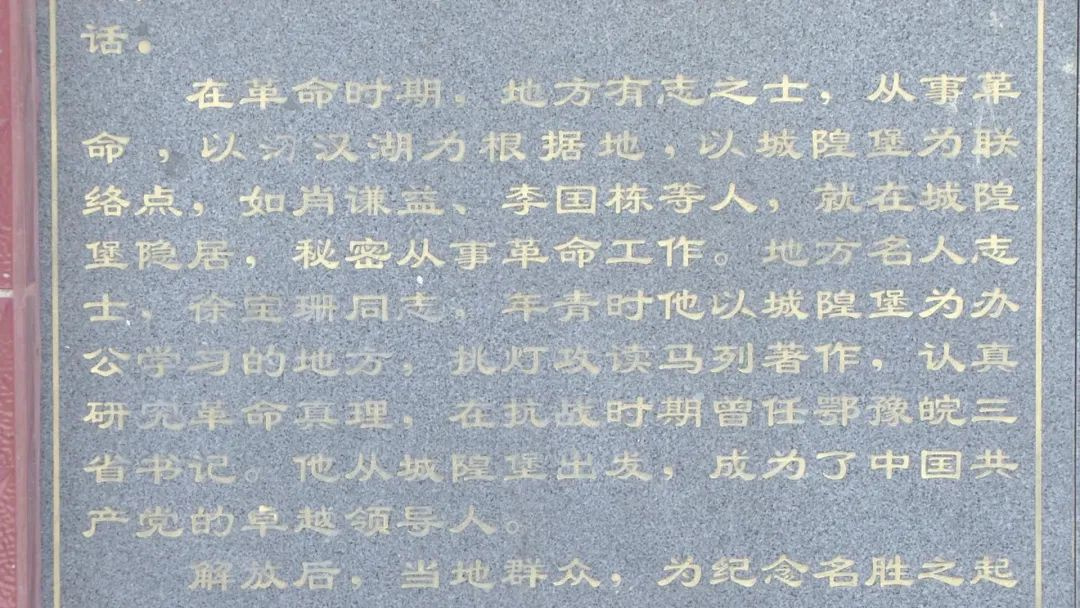 话．
在革命时期，地方有志之士，从事革
命，以汈汉湖为根据地，以城隍堡为联
络点，如肖谦益、李国栋等人，就在城隍
堡隐居，秘密从事革命工作。地方名人志
士，徐宝珊同志，年青时他以城隍堡为办
公学习的地方，挑灯攻读马列著作，认真
研究革命真理，在抗战时期曾任鄂豫皖三
省书记。他从城隍堡出发，成为了中国共
产党的卓越领导人。
解放后，当地群众，为纪念名胜之起